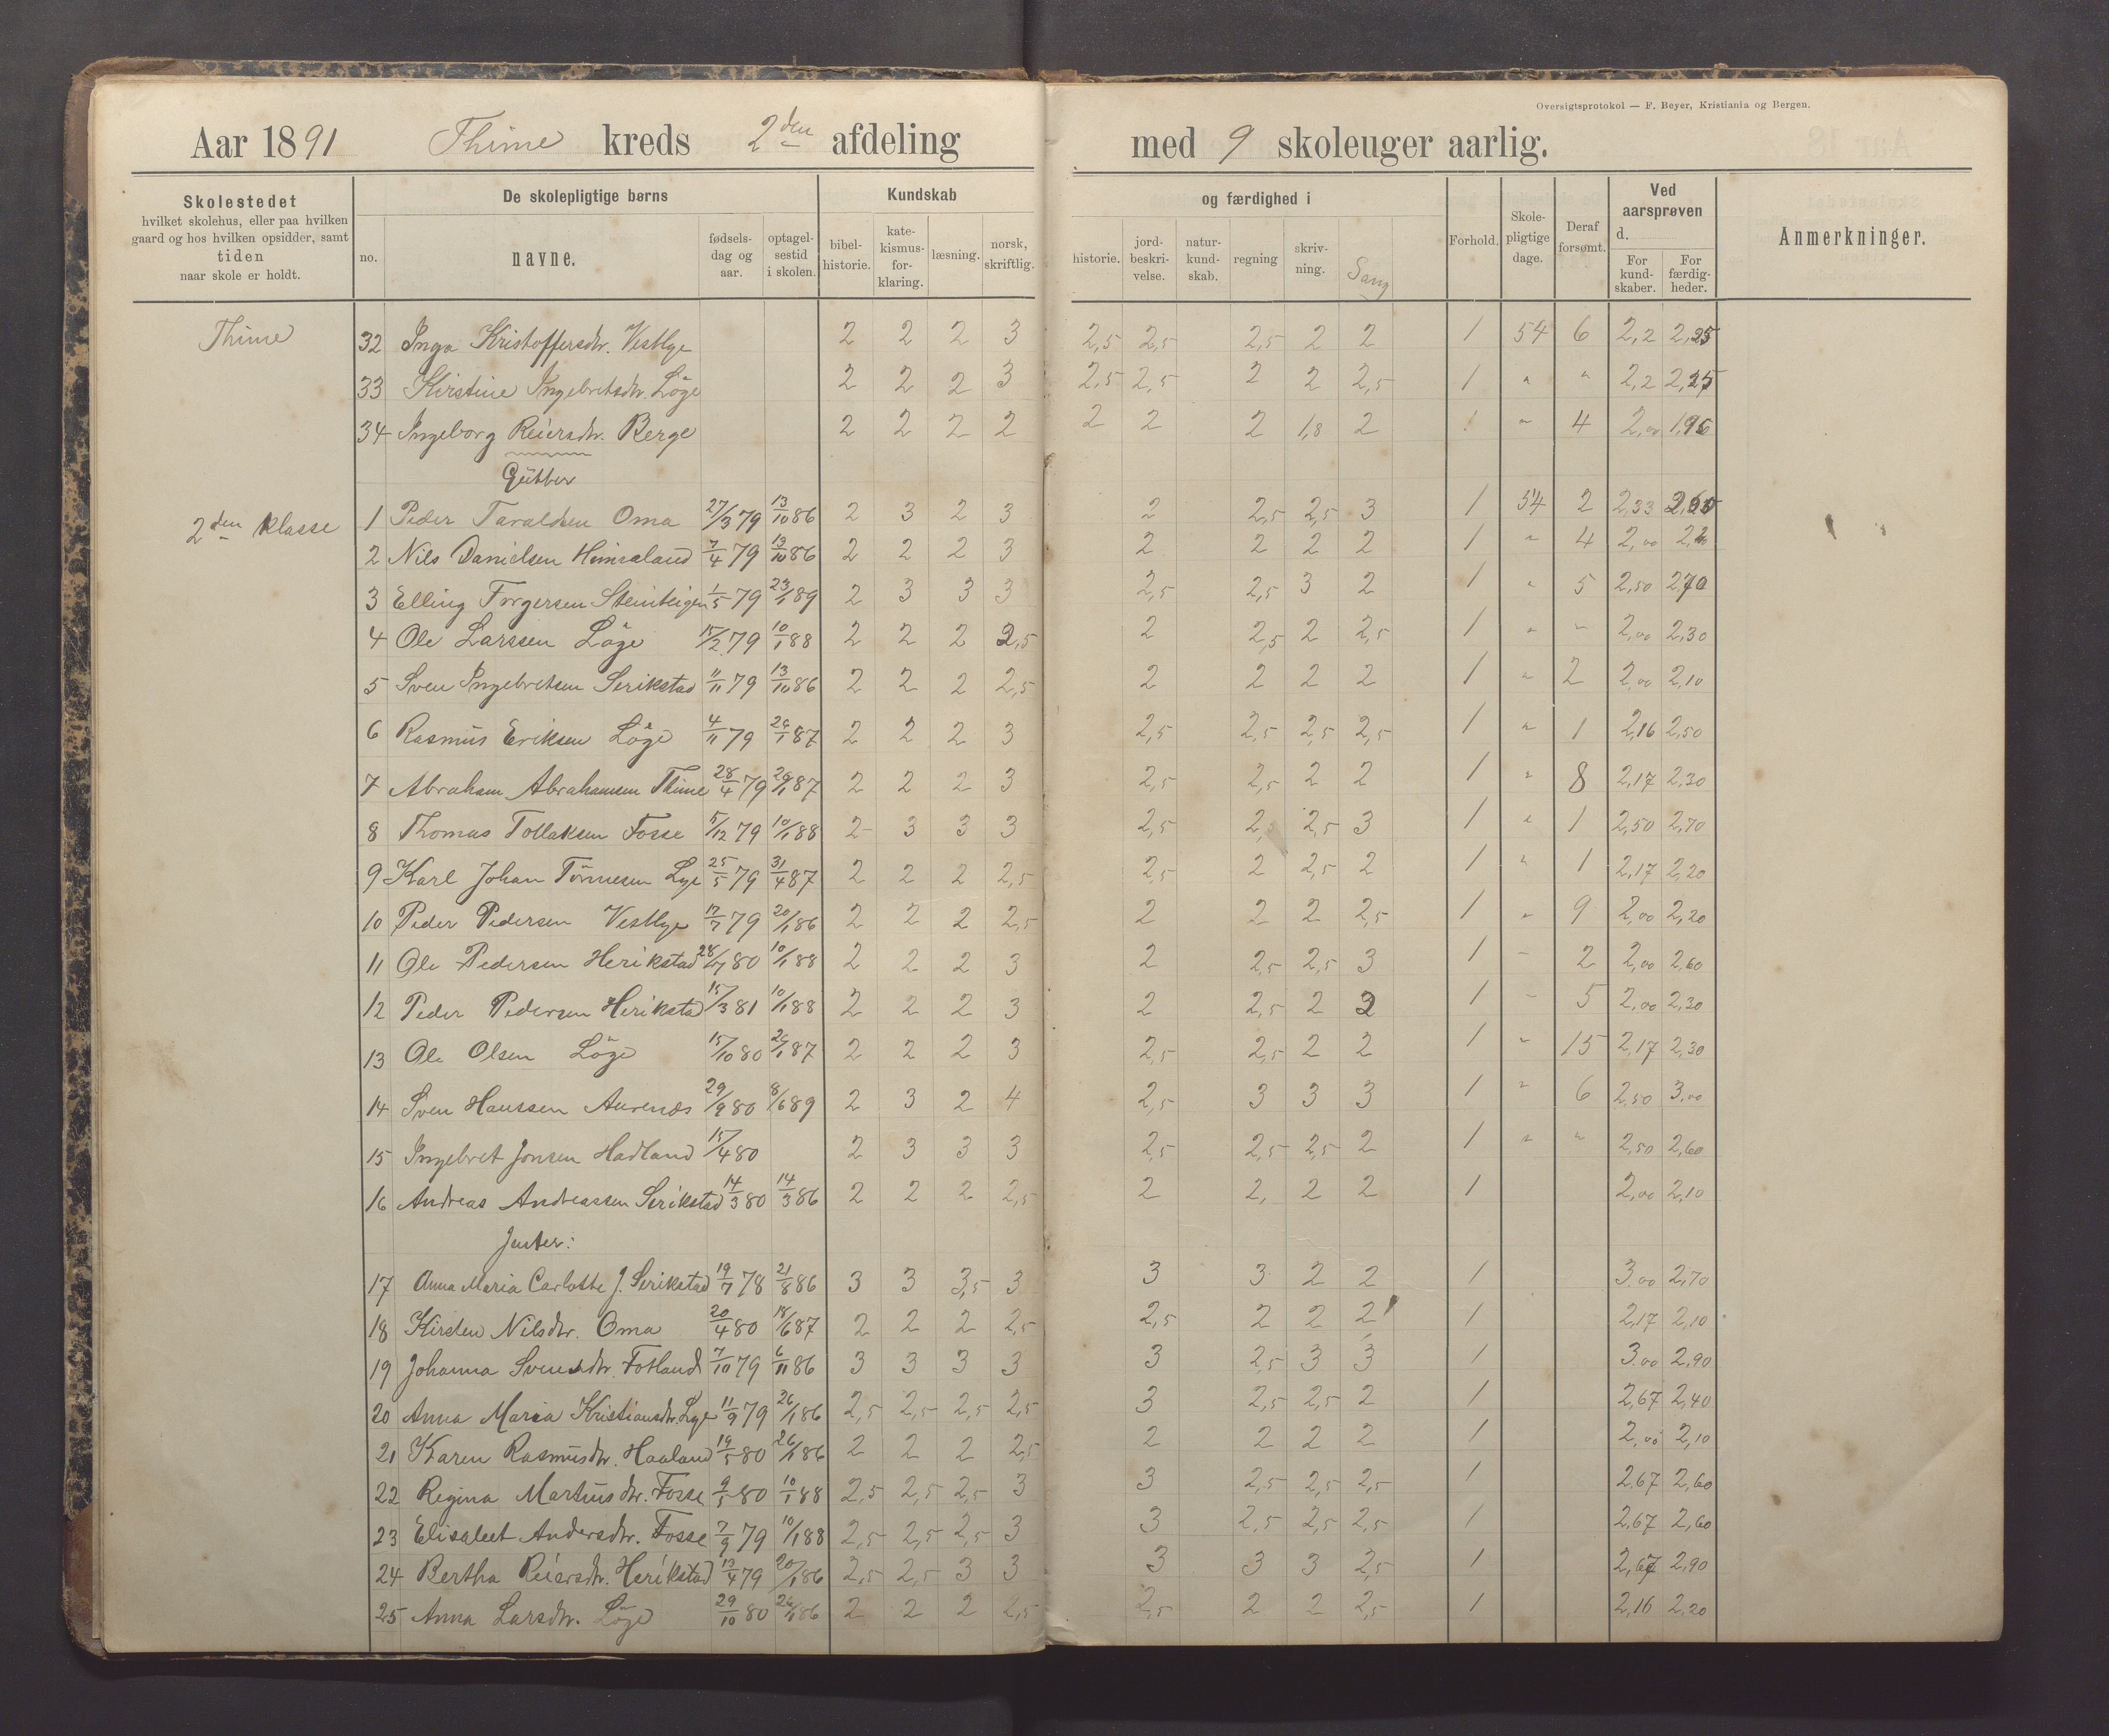 Oversigtsprotokol — F. Beyer, Kristiania og Bergen.
Aar 1891 Thime kreds 2den afdeling med 9 skoleuger aarlig.
Skolestedet hvilket skolehus, eller paa hvilken gaard og hos hvilken opsidder, samt tiden naar skole er holdt.
De skolepligtige børns
no. navne. fødsels-dag og aar. optagel-sestid i skolen.
Kundskab og færdighed i
bibel-historie. kate-kismus-for-klaring. læsning. norsk, skriftlig. historie. jord-beskri-velse. natur-kund-skab. regning skriv-ning. Sang
Forhold. Skole-pligtige dage. Deraf forsømt.
Ved aarsprøven d.
For kund-skaber. For færdig-heder.
Anmerkninger.
Thime
32 Inga Kristoffersdtr. Vestlye 2 2 2 3 2,5 2,5 2,5 2 2 1 54 6 2,2 2,25
33 Kirstine Ingebretsdtr. Löge 2 2 2 3 2,5 2,5 2 2 2,5 1 " " 2,2 2,25
34 Ingeborg Reiersdtr. Berge 2 2 2 2 2 2 2 1,8 2 1 " 4 2,00 1,96
Gutter
2den Klasse
1 Peder Taraldsen Oma 27/3 79 13/10 86 2 3 2 3 2 2,5 2,5 3 1 54 2 2,33
2 Nils Danielsen Himraland 7/4 79 13/10 86 2 2 2 3 2 2 2 2 1 " 4 2,00
3 Elling Torgersen 1/5 79 23/1 89 2 3 3 3 2,5 2,5 3 2 1 " 5 2,50 2,70
4 Ole Larssen Löge 15/2 79 10/1 88 2 2 2 2,5 2 2,5 2 2,5 1 " " 2,00 2,30
5 Sven Ingebretsen Serikstad 11/11 79 13/10 86 2 2 2 2,5 2 2 2 2 1 " 2 2,00 2,10
6 Rasmus Eriksen Löge 4/11 79 26/1 87 2 2 2 3 2,5 2,5 2,5 2,5 1 " 1 2,16 2,50
7 Abraham Abrahamsen Thime 28/4 79 26/1 87 2 2 2 3 2,5 2,5 2 2 1 " 8 2,17 2,30
8 Thomas Tollaksen Fosse 5/12 79 10/1 88 2 3 3 3 2,5 2, 2,5 3 1 " 1 2,50 2,70
9 Karl Johan Tönnesen Lye 25/5 79 31/4 87 2 2 2 2,5 2,5 2 2,5 2 1 " 1 2,17 2,20
10 Peder Pedersen Vestlye 17/7 79 20/1 86 2 2 2 2,5 2 2 2 2,5 1 " 9 2,00 2,20
11 Ole Pedersen Herikstad 28/7 80 10/1 88 2 2 2 3 2 2,5 2,5 3 1 " 2 2,00 2,60
12 Peder Pedersen Herikstad 15/3 81 10/1 88 2 2 2 3 2 2,5 2 2 1 " 5 2,00 2,30
13 Ole Olsen Löge 15/10 80 26/1 87 2 2 2 3 2,5 2,5 2 2 1 " 15 2,17 2,30
14 Sven Hanssen Aurenes 29/9 80 8/6 89 2 3 2 4 2,5 3 3 3 1 " 6 2,50 3,00
15 Ingebret Jonsen Hadland 15/4 80 2 3 3 3 2,5 2,5 2,5 2 1 " " 2,50 2,60
16 Andreas Andreassen Serikstad 14/3 80 14/3 86 2 2 2 2,5 2 2, 2 2 1 2,00 2,10
Jenter:
17 Anna Maria Carlotte J. Serikstad 19/7 78 21/8 86 3 3 3,5 3 3 3 2 2 1 3,00 2,70
18 Kirsten Nilsdtr. Oma 20/4 80 18/6 87 2 2 2 2,5 2,5 2 2 2 1 2,17 2,10
19 Johanna Svensdtr. Fotland 7/10 79 6/11 86 3 3 3 3 3 2,5 3 3 1 3,00 2,90
20 Anna Maria Kristiansdtr. Lye 11/9 79 26/1 86 2,5 2,5 2,5 2,5 3 2,5 2,5 2 1 2,67 2,40
21 Karen Rasmusdtr. Haaland 19/5 80 26/1 86 2 2 2 2,5 2 2 2 2 1 2,00 2,10
22 Regina Martinsdtr. Fosse 9/5 80 10/1 88 2,5 2,5 2,5 3 3 2,5 2,5 2,5 1 2,67 2,60
23 Elisabet Andersdtr. Fosse 7/9 79 10/1 88 2,5 2,5 2,5 3 3 2,5 2,5 2,5 1 2,67 2,60
24 Bertha Reiersdtr. Herikstad 13/4 79 20/1 86 2,5 2,5 3 3 3 3 3 2,5 1 2,67 2,90
25 Anna Larsdtr. Löge 29/10 80 26/1 86 2 2 2 2,5 2,5 2 2 2,5 1 2,16 2,20